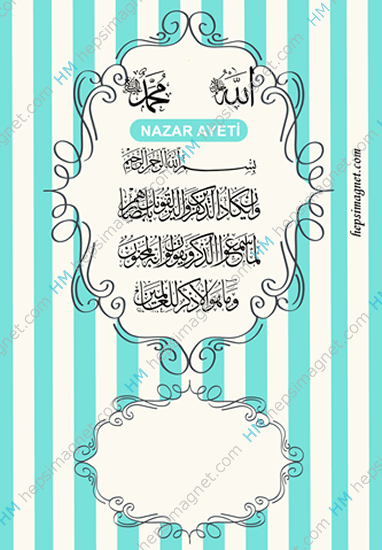 الله محمد
NAZAR AYETİ
بسم الله الرحمن الرحيم
وان يكاد الذين كفروا ليزلقونك بابصارهم
لما سمعوا الذكر ويقولون انه لمجنون
وما هو الا ذكر للعالمين
hepsimagnet.com
HM hepsimagnet.com